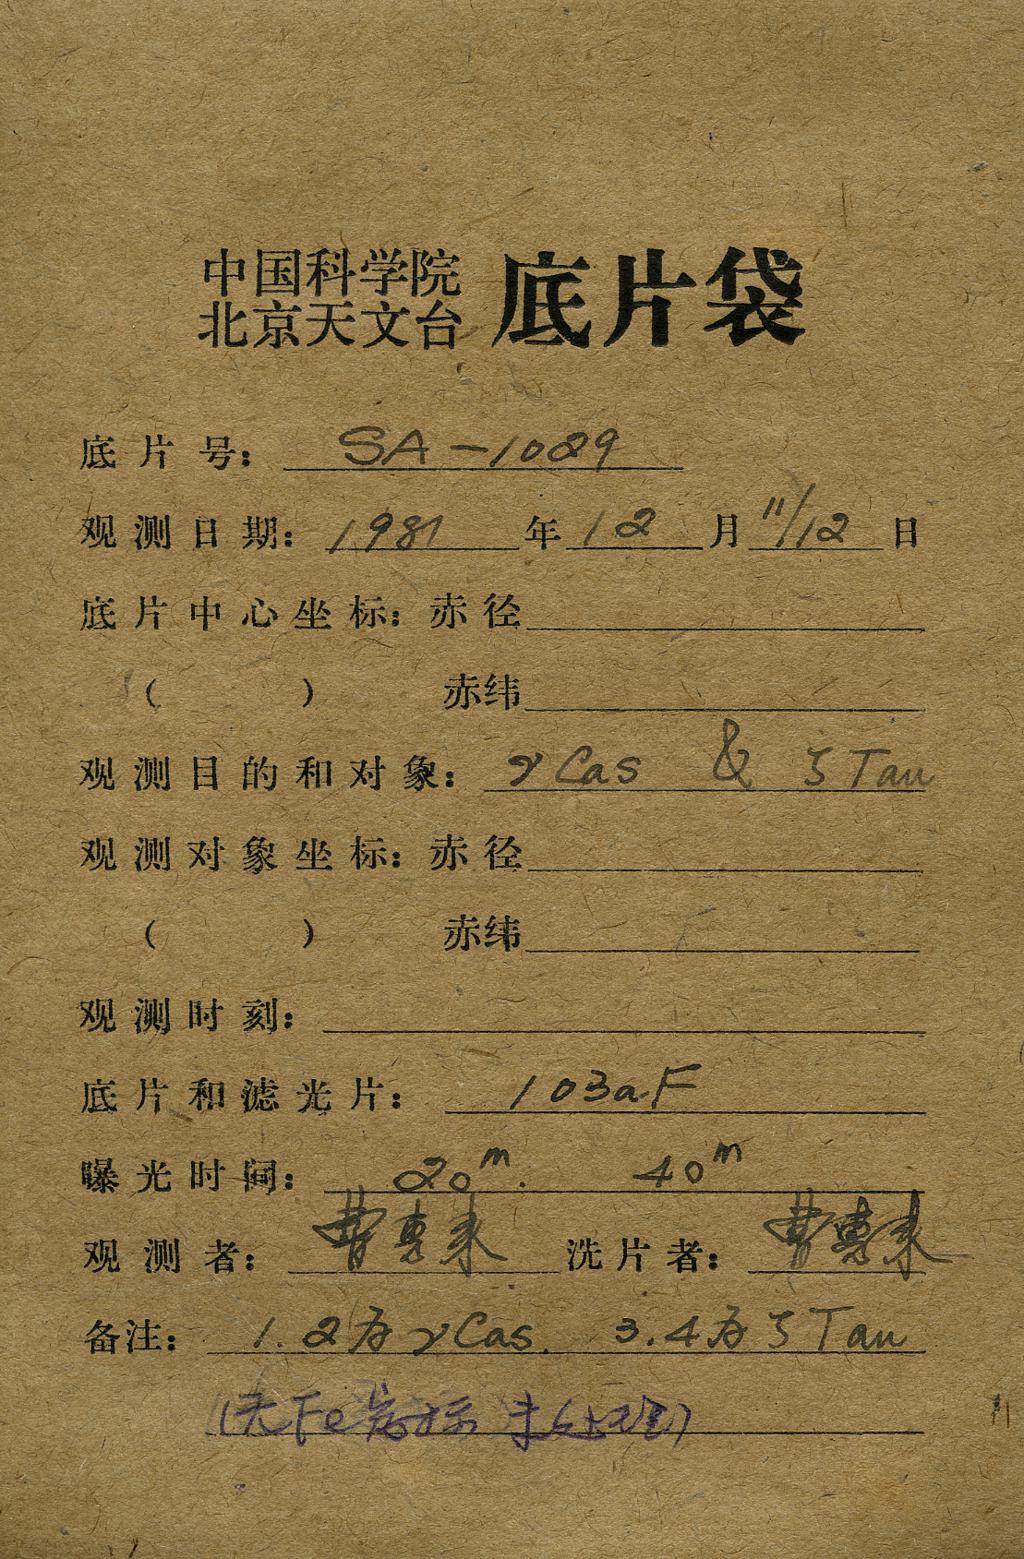 中国科学院
北京天文台 底片袋
底片号: SA-1089
观测日期: 1981年12月11/12日
底片中心坐标: 赤径
( ) 赤纬
观测目的和对象: γ Cas & ζ Tau
观测对象坐标: 赤径
( ) 赤纬
观测时刻:
底片和滤光片: 103aF
曝光时间: 20m. 40m
观测者: 曹惠来 洗片者: 曹惠来
备注: 1.2为γ Cas. 3.4为ζ Tau
(无Fe 标 未处理)